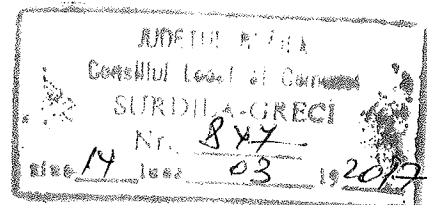 JUDEŢUL
Consiliul Local al Comunei
SURDILA-GRECI
Nr. 847
ziua 14 luna 03 19 2017